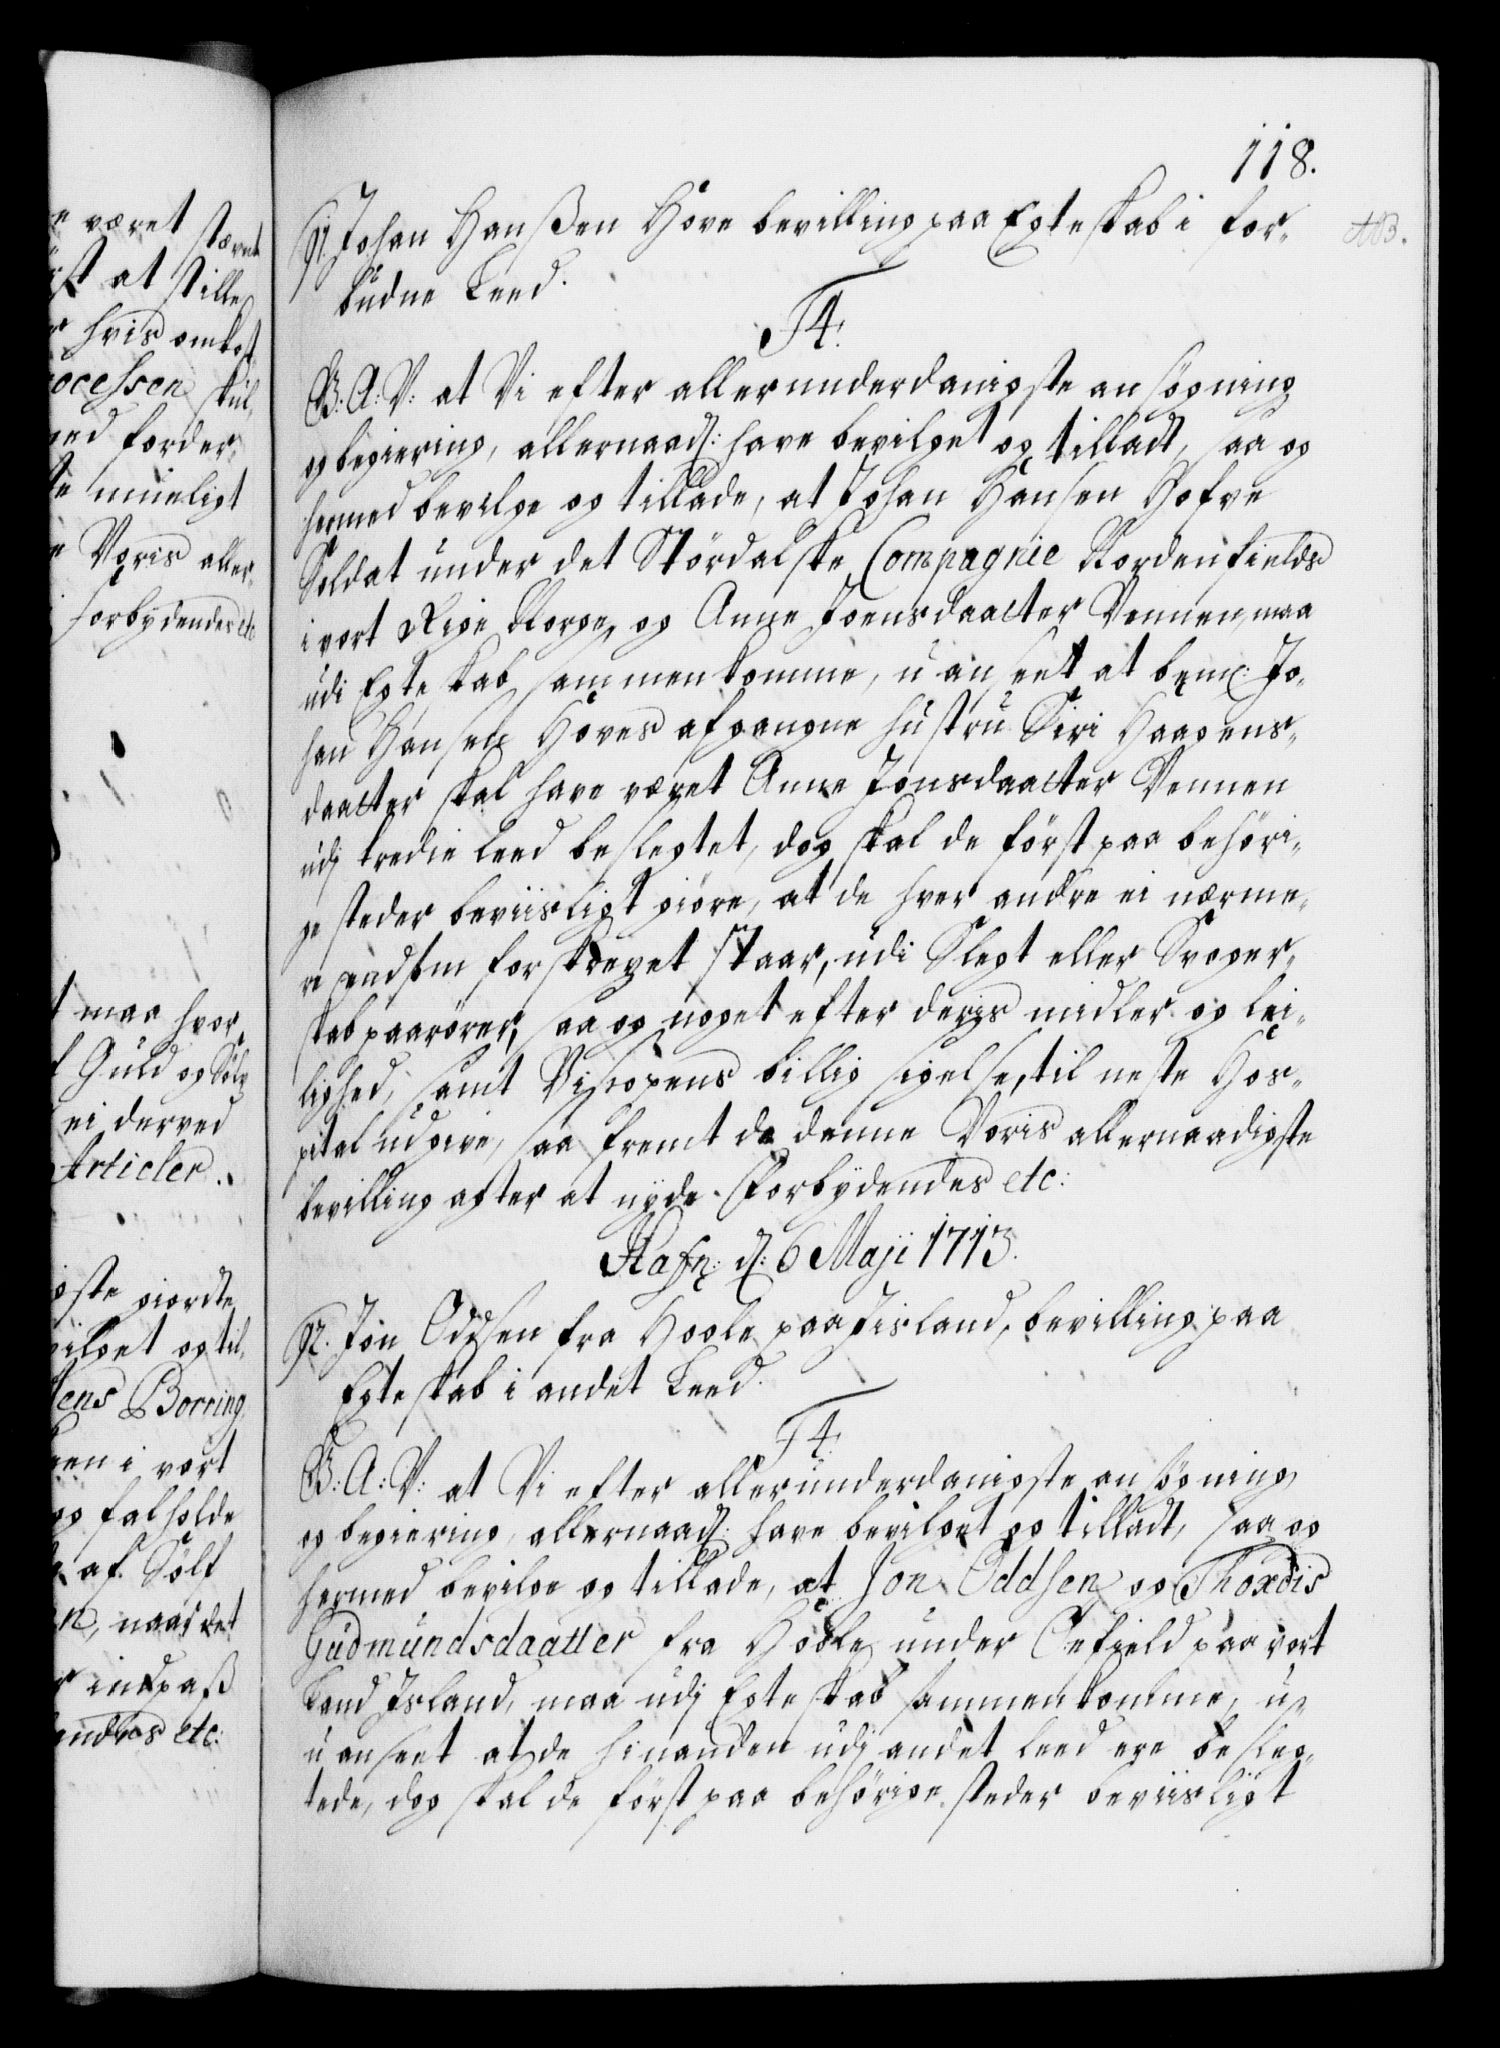 e været stævnt
først at stille
r hvis omkost
ocessen skul,
med forder,
te mueligt
e Voris aller,
i forbydendes etc
t maa hvor,
f Guld og Sølv
ei derved
Articler.
igste giordte
vilget og til,
Jens Borring
en i vort
og falholde
af Sølf
n, naar det
r indpaß
endes etc:
118.
NB.
91. Johan Hanßen Höve bevilling paa Egteskab i for,
budne Leed.
F4.
G: A: V: at Vi efter allerunderdanigste ansögning
og begiering, allernaad: have bevilget og tilladt, saa og
hermed bevilge og tillade, at Johan Hansen Hofve
Soldat under det Stördalske Compagnie Nordenfields
i vort Rige Norge, og Anne Joensdaatter Vennen, maa
udi Egteskab sammenkomme, uanseet at bem: Jo,
han Hansen Höves afgangne hustru Siri Haagens,
daatter skal have været Anne Jonsdaatter Vennen
udj tredie leed beslegtet, dog skal de först paa behöri,
ge steder beviisligt giöre, at de hver andre ei nærme,
re end som forskrevet staar, udi Slegt eller Svoger,
skab paarörer, saa og noget efter deris midler og lei,
lighed, samt Biscopens billig sigelse, til neste Hos,
pital udgive, saa fremt de denne Voris allernaadigste
bevilling agter at nyde. Forbydendes etc:
Hafn: d: 6 Maji 1713.
92. Jon Oddsen fra Hoole paa Iisland, bevilling paa
Egteskab i andet Leed.
F4.
G: A: V: at Vi efter allerunderdanigste ansögning
og begiering, allernaad: have bevilget og tilladt, saa og
hermed bevilge og tillade, at Jon Oddsen og Thordis
Gudmundsdaatter fra Hoole under Oefield paa vort
Land Island, maa udj Egteskab sammenkomme, u,
uanseet at de hinanden udj andet leed ere besleg,
tede, dog skal de först paa behörige steder beviisligt